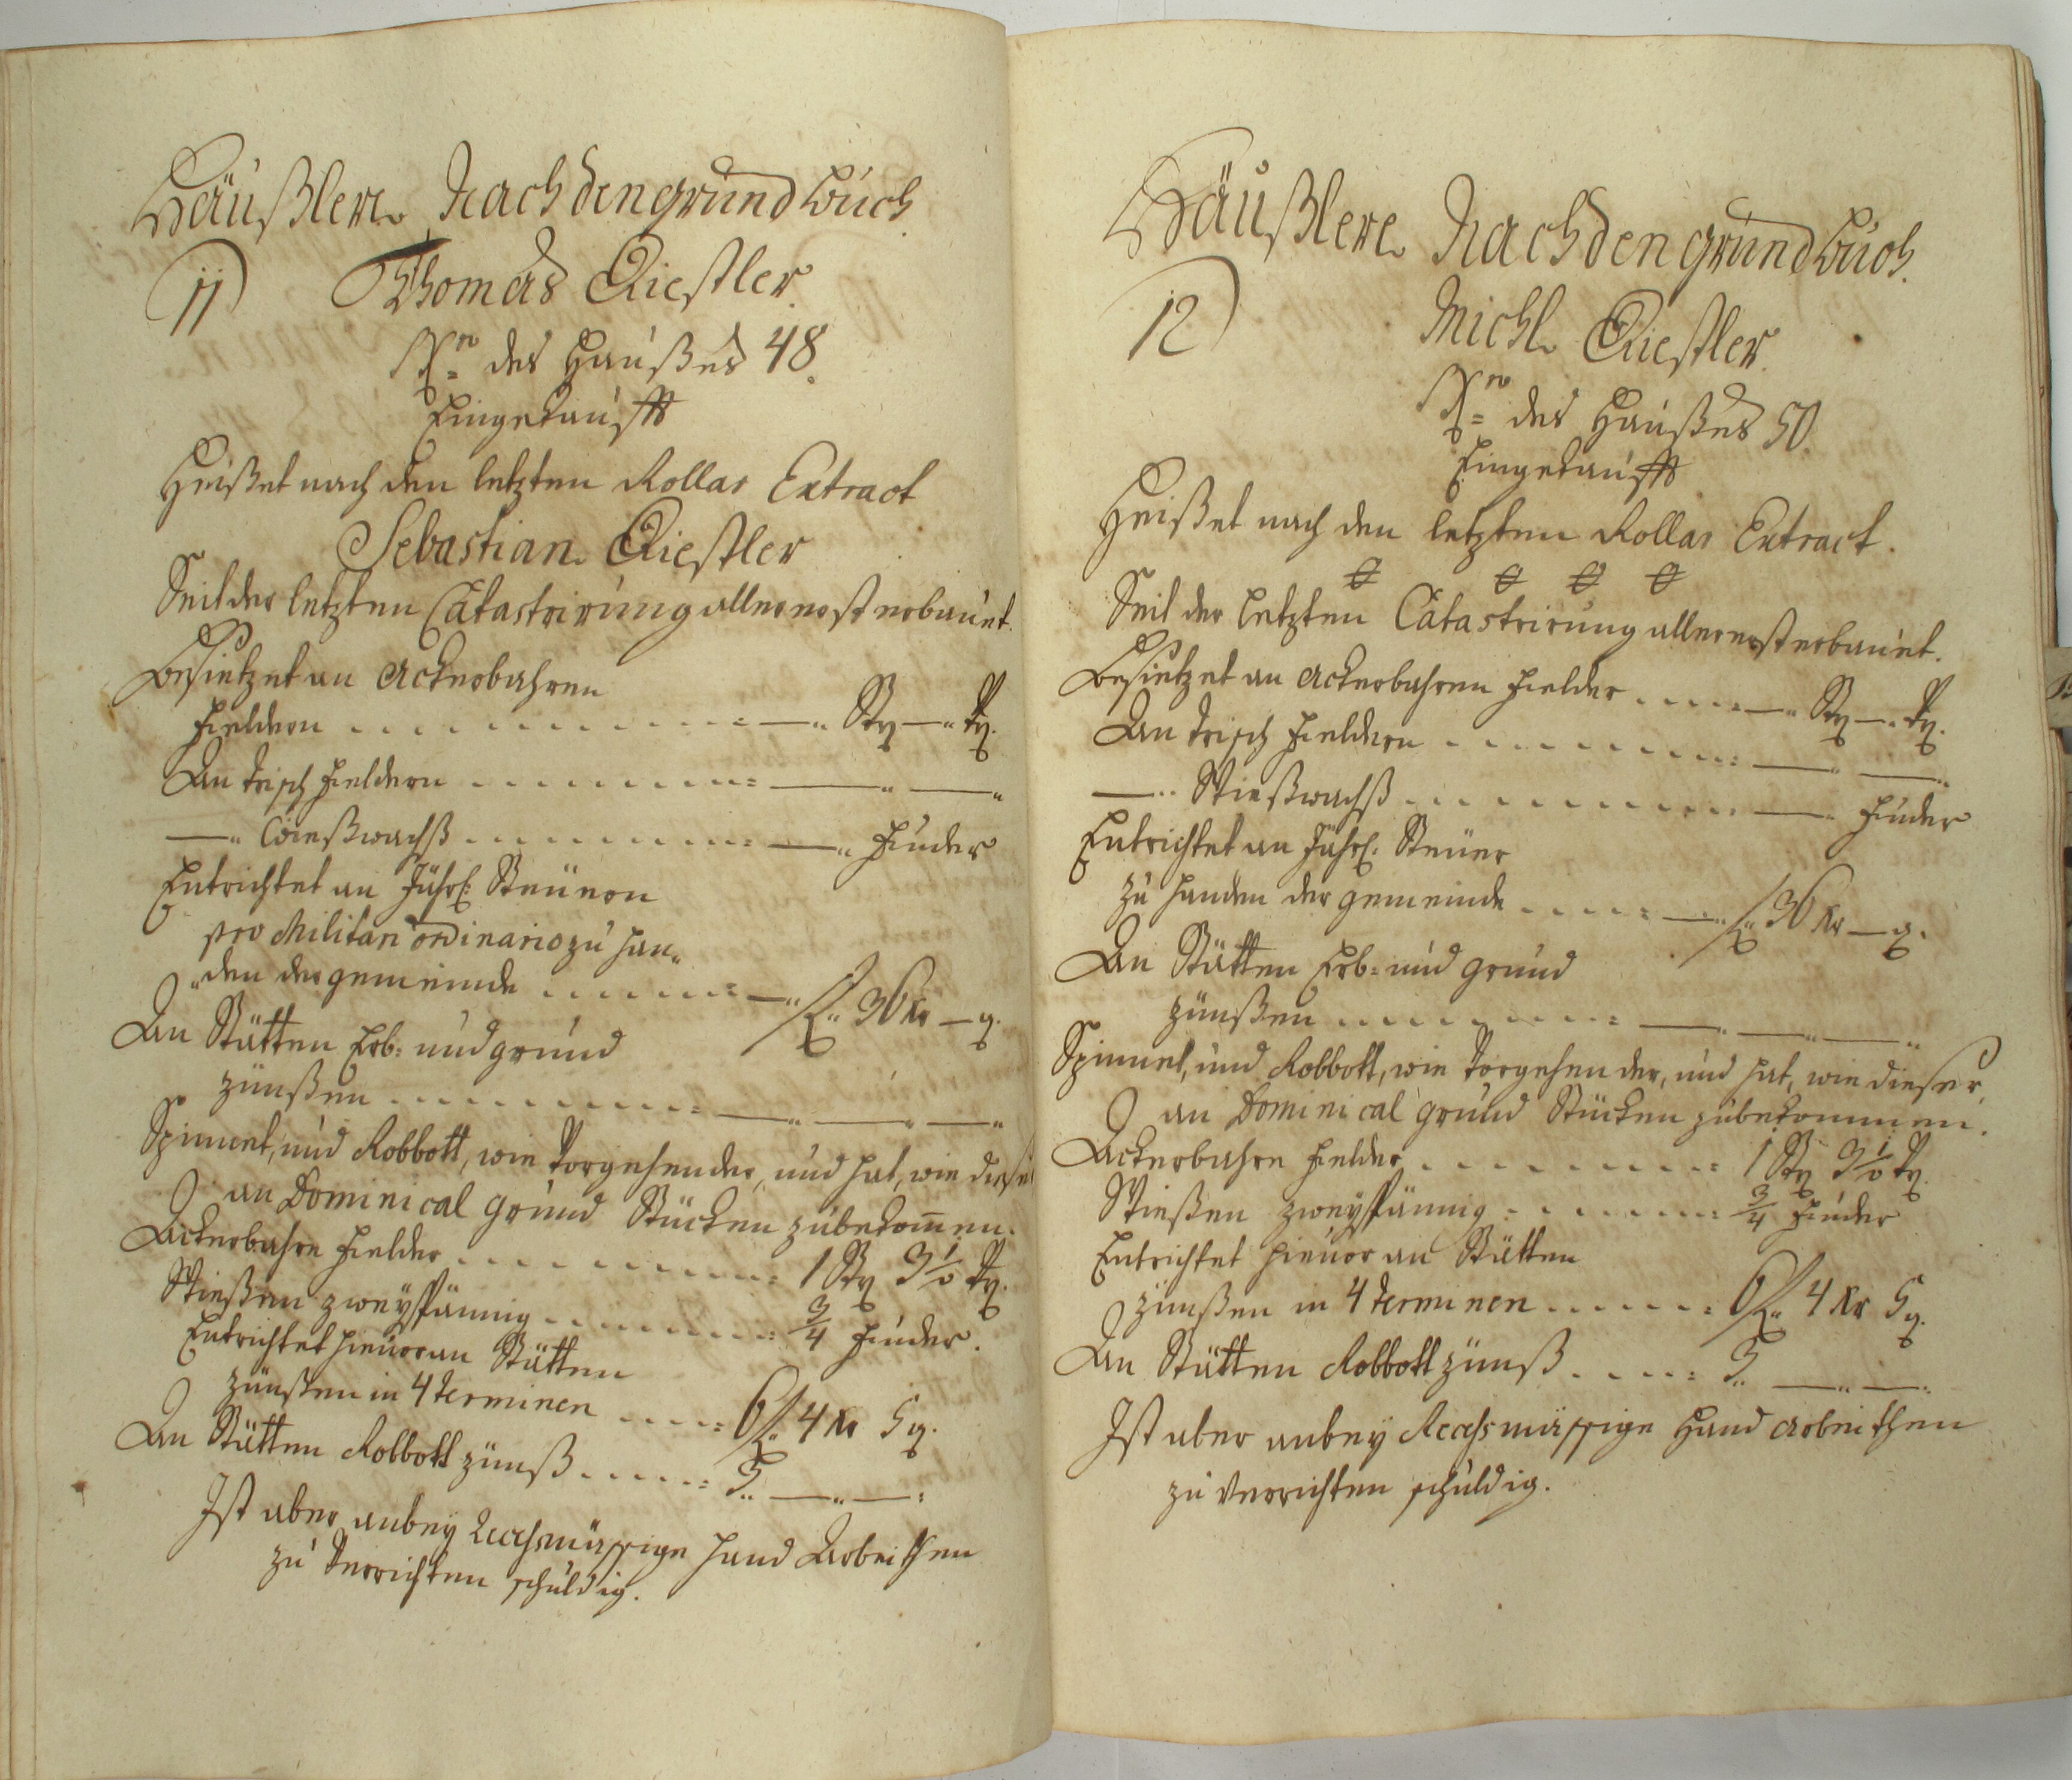 Häußlere Nach den grund buch
11) Thomas Riestler.
Nro des Haußes 48.
Eingekaufft
Heißet nach den letzten Rollar Extract
Sebastian Riestler
Seit der letzten Catastrirung allererst erbauet.
Besietzet an Ackerbahren
Fieldern - - - - - - - - - - = —„ Stz —„ Vtz.
An Trisch Fieldern - - - - - - - - = —„ —„
—„ Wießwachß - - - - - - - - = —„ Fuder
Entrichtet an Jährl: Steüern
pro Militari ordinario zu han„
„den der gemeinde - - - - - = —„ f„ 36 Kr — d.
An Stätten Erb= und grund
zünßen - - - - - - - - - = —„ —„ —„
Spinnet, und Robbott, wie Vorgehender, und hat, wie dieser
an Dominical grund Stücken zubekom̅en.
Ackerbahre Fielder - - - - - - - = 1 Stz 3½ Vtz.
Wießen zweyspännig - - - - - - = 3/4 Fuder.
Entrichtet hievor an Stätten
zünßen in 4 Terminen - - - - = 6 f„ 4 Kr 5 d.
An Stätten Robbott zünß - - - - = 5„ —„ —„
Ist aber anbey Recessmässige Hand Arbeithen
zu Verrichten schuldig.
Häußlere Nach den grund buch.
12) Michl Riestler.
Nro des Haußes 50.
Eingekaufft
Heißet nach den letzten Rollar Extract.
Seit der letzten Catastrirung allererst erbauet.
Besietzet an Ackerbahren Fielder - - - - = —„ Stz —„ Vtz.
An Trisch Fieldern - - - - - - - - = —„ —„
—„ Wießwachß - - - - - - - - - = —„ Fuder
Entrichtet an Jährl: Steüer
zu Handen der gemeinde - - - - = —„ f„ 36 Kr — d.
An Stätten Erb= und grund
zünßen - - - - - - - - = —„ —„ —„
Spinnet, und Robbott, wie Vorgehender, und hat, wie dieser,
an Dominical grund Stücken zubekommen.
Ackerbahre Fielder - - - - - - - = 1 Stz 3½ Vtz.
Wießen zweyspännig - - - - - - = 3/4 Fuder
Entrichtet hievor an Stätten
zünßen in 4 Terminen - - - - - = 6 f„ 4 Kr 5 d.
An Stätten Robbott zünß - - - - = 5„ —„ —„
Ist aber anbey Recessmässige Hand Arbeithen
zu Verrichten schuldig.